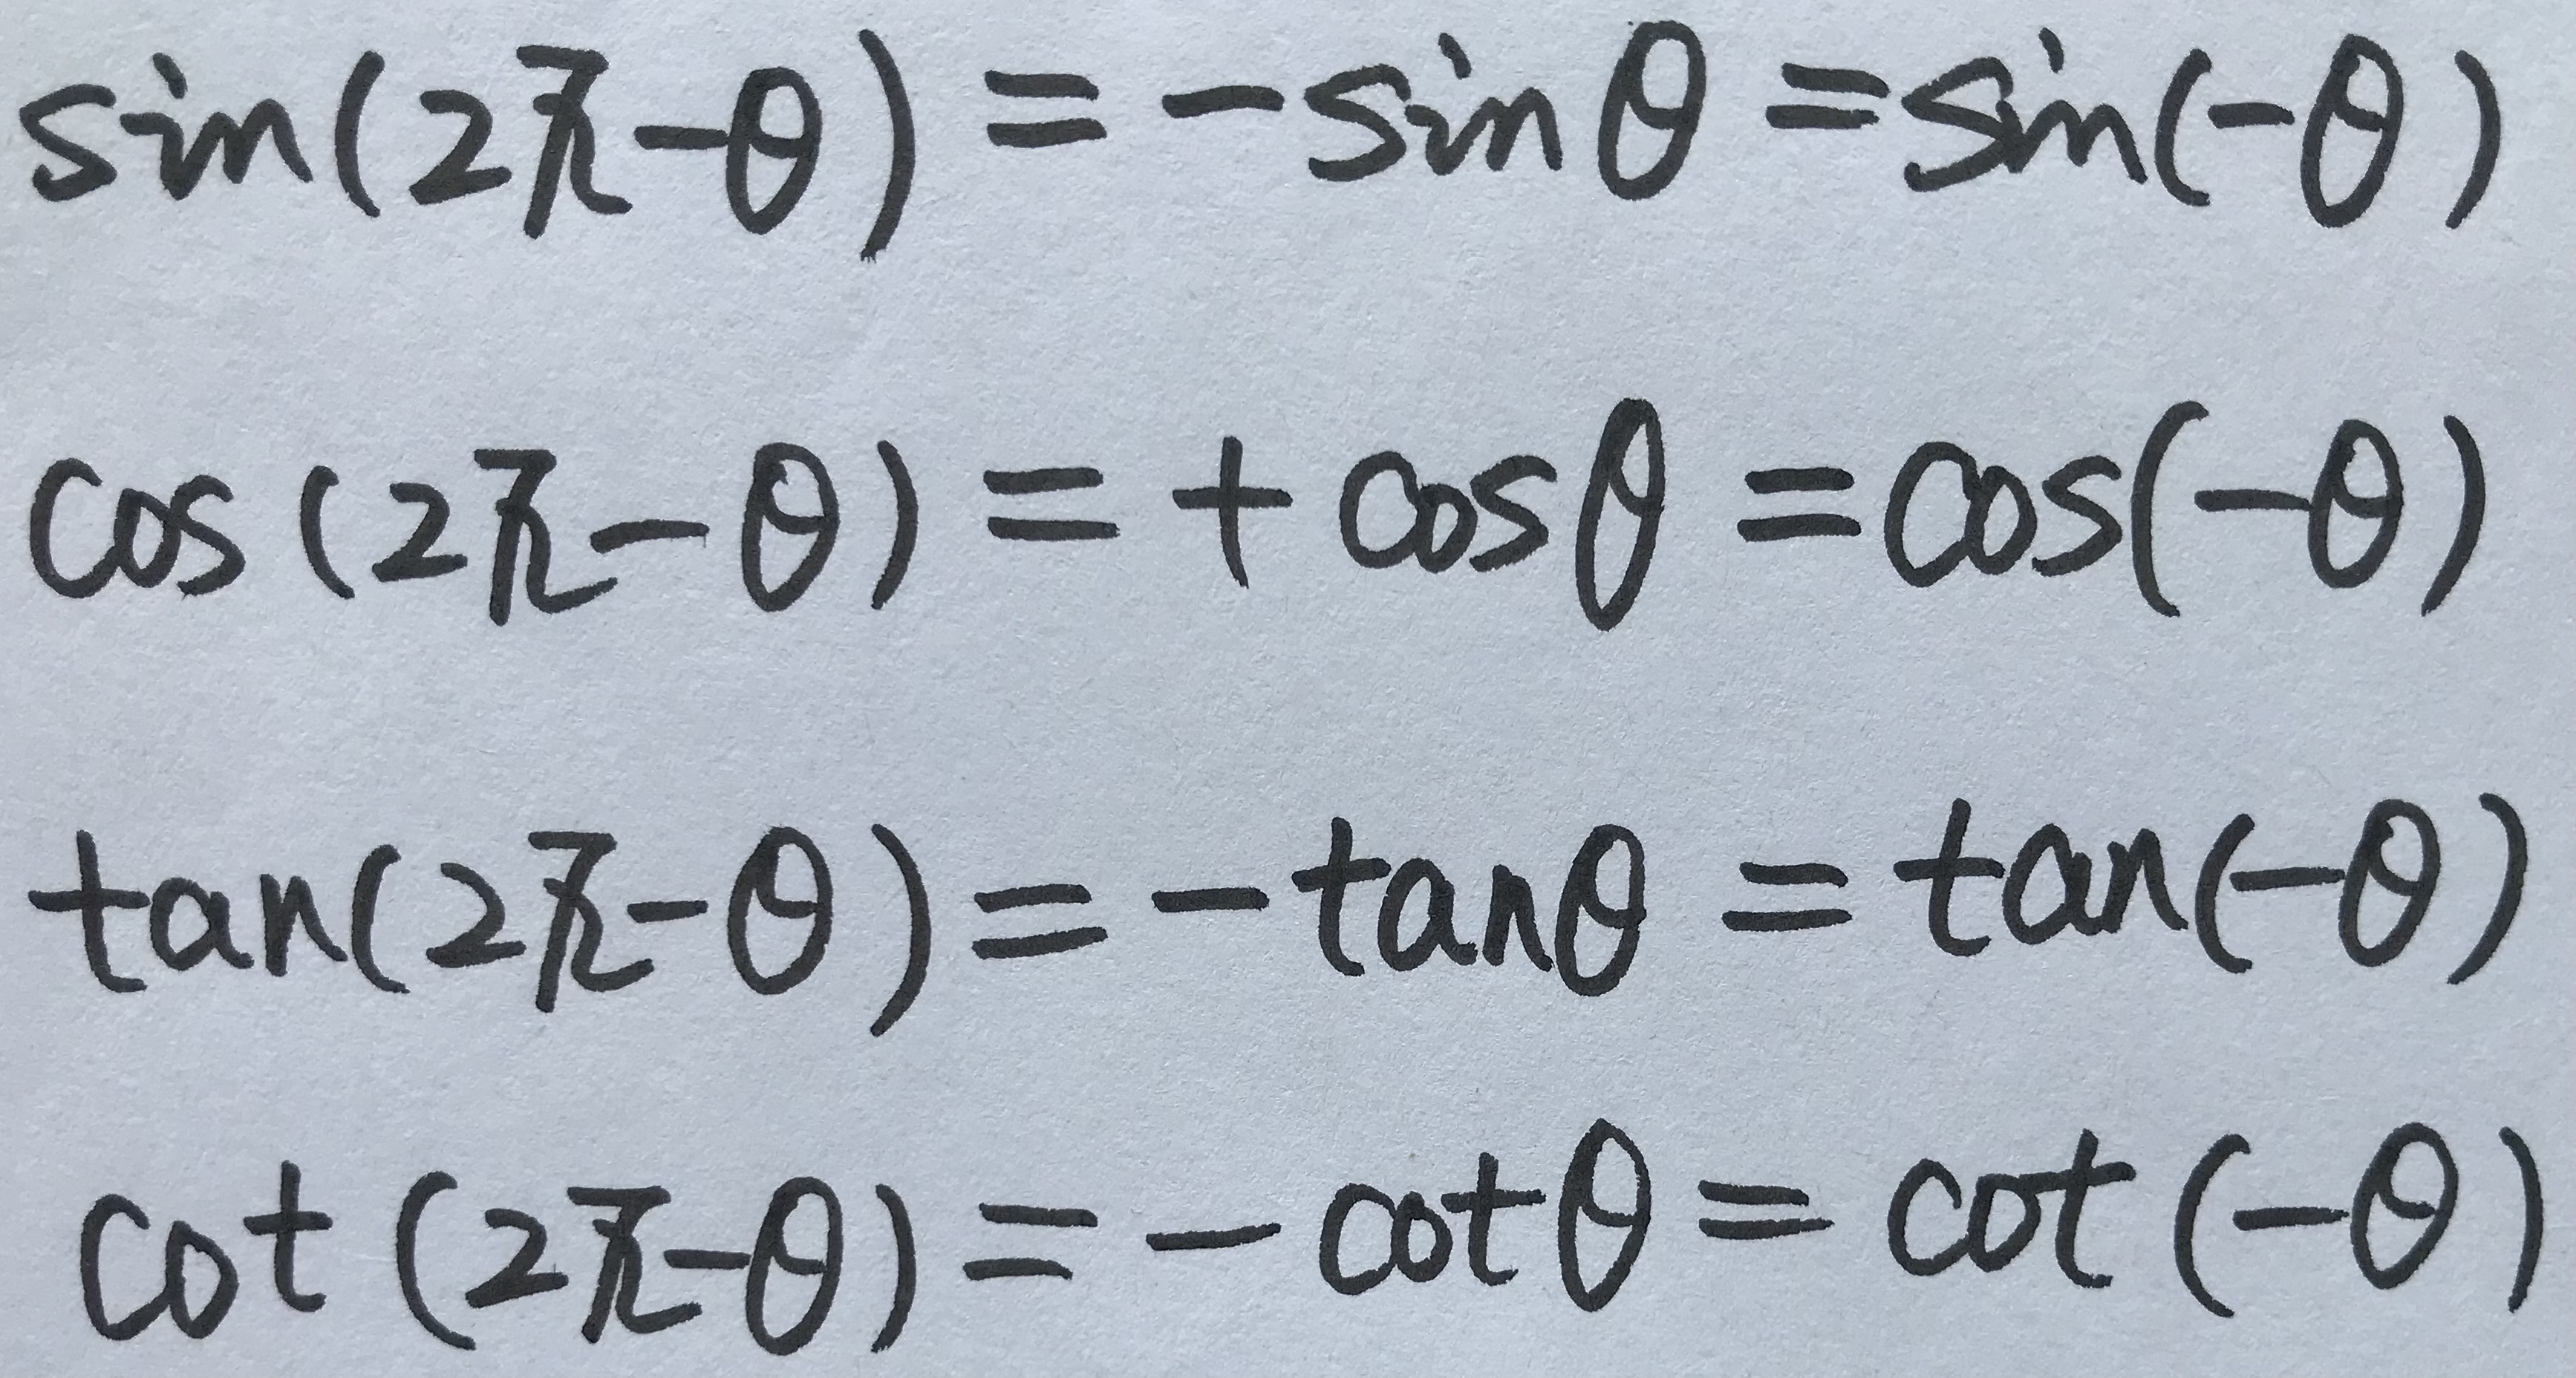 sin(2π-θ) = -sinθ = sin(-θ)
cos(2π-θ) = +cosθ = cos(-θ)
tan(2π-θ) = -tanθ = tan(-θ)
cot(2π-θ) = -cotθ = cot(-θ)